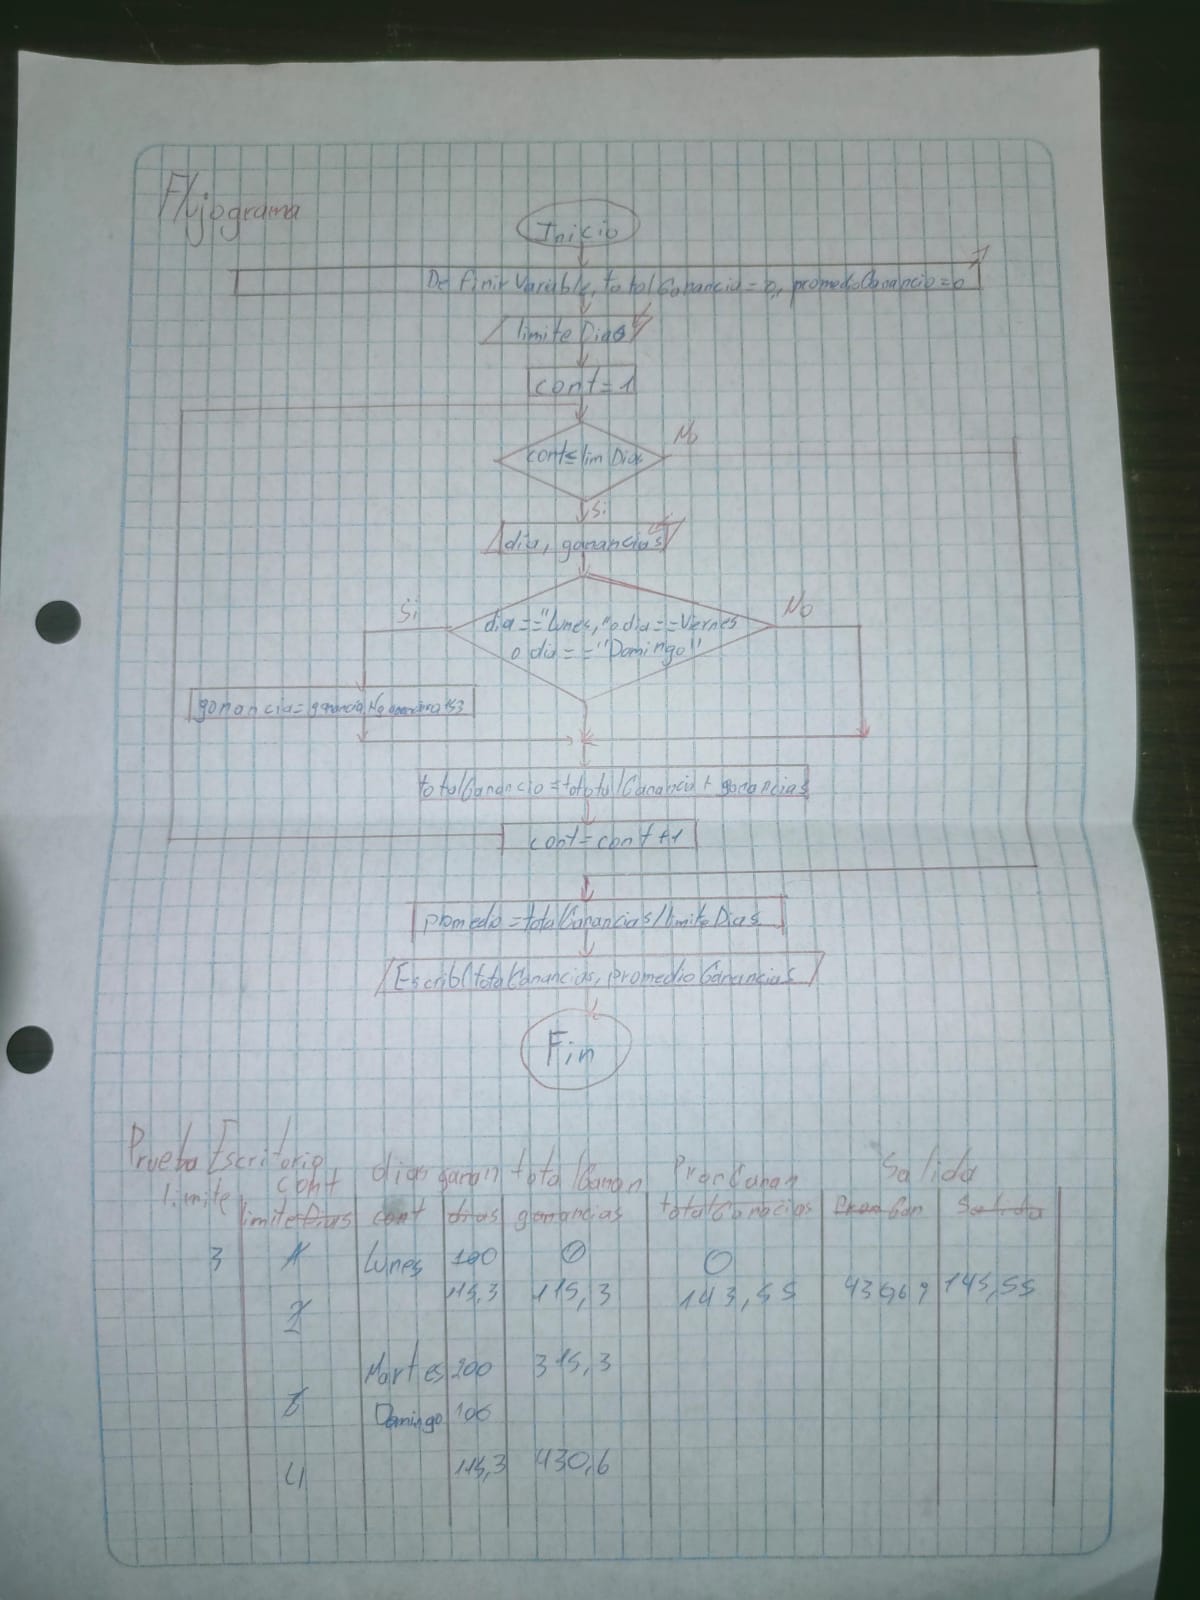 Flujograma
Inicio
Definir Variable, totalGanancia=0, promedoGanancio=0
limite Dias
cont=1
cont≤lim Dias
No
Si
dia, ganancias
Si
No
dia=="Lunes," o dia==Viernes
o dia=="Domingo"
ganancia=ganancia
totalGanancio=tototalGanancia+ganancias
cont=cont+1
promedio=totalGanancias/limiteDias
Escrib(totalGanancias, promedioGanancias
Fin
Prueba Escritorio
limite cont dias ganan totalGanan Salida
limiteDias cont dias ganancias totalGanacias Gan Salida
3 1 Lunes 100 0 0
2 115,3 115,3 143,55 143,55
Martes 200 315,3
Domingo 100
4 115,3 430,6